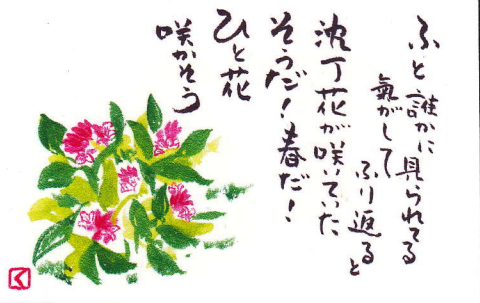 ふと誰かに見られてる
氣がして
ふり返ると
沈丁花が咲いていた
そうだ！春だ！
ひと花
咲かそう
く